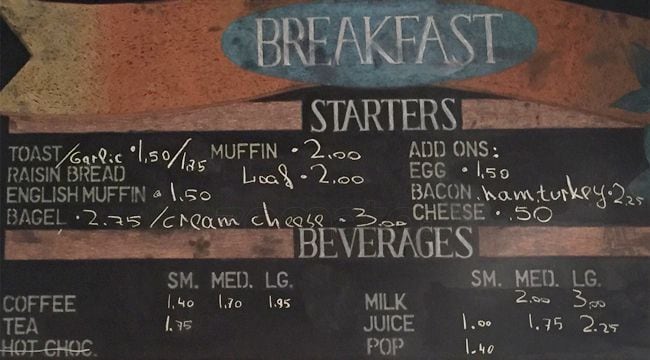 BREAKFAST
STARTERS
TOAST/Garlic • 1.50/1.75 MUFFIN • 2.00 ADD ONS:
RAISIN BREAD Loaf • 2.00 EGG • 1.50
ENGLISH MUFFIN • 1.50 BACON.ham.turkey • 2.25
BAGEL • 2.75/cream cheese • 3.00 CHEESE • .50
BEVERAGES
SM. MED. LG. SM. MED. LG.
COFFEE 1.40 1.70 1.95 MILK 2.00 3.00
TEA 1.75 JUICE 1.00 1.75 2.25
HOT CHOC. POP 1.40